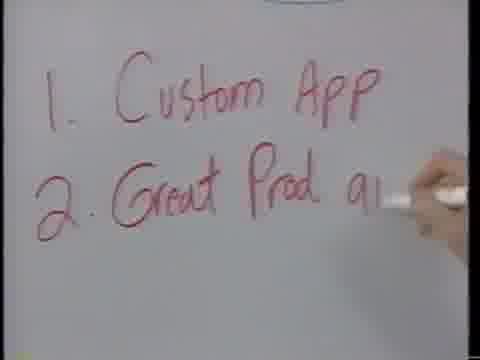 1. Custom App
2. Great Prod